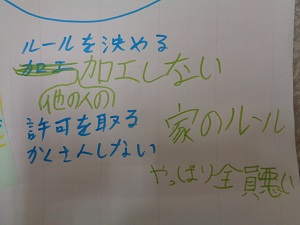 ルールを決める
加工しない
(他の人の)
許可を取る
かくさんしない
家のルール
やっぱり全員悪い